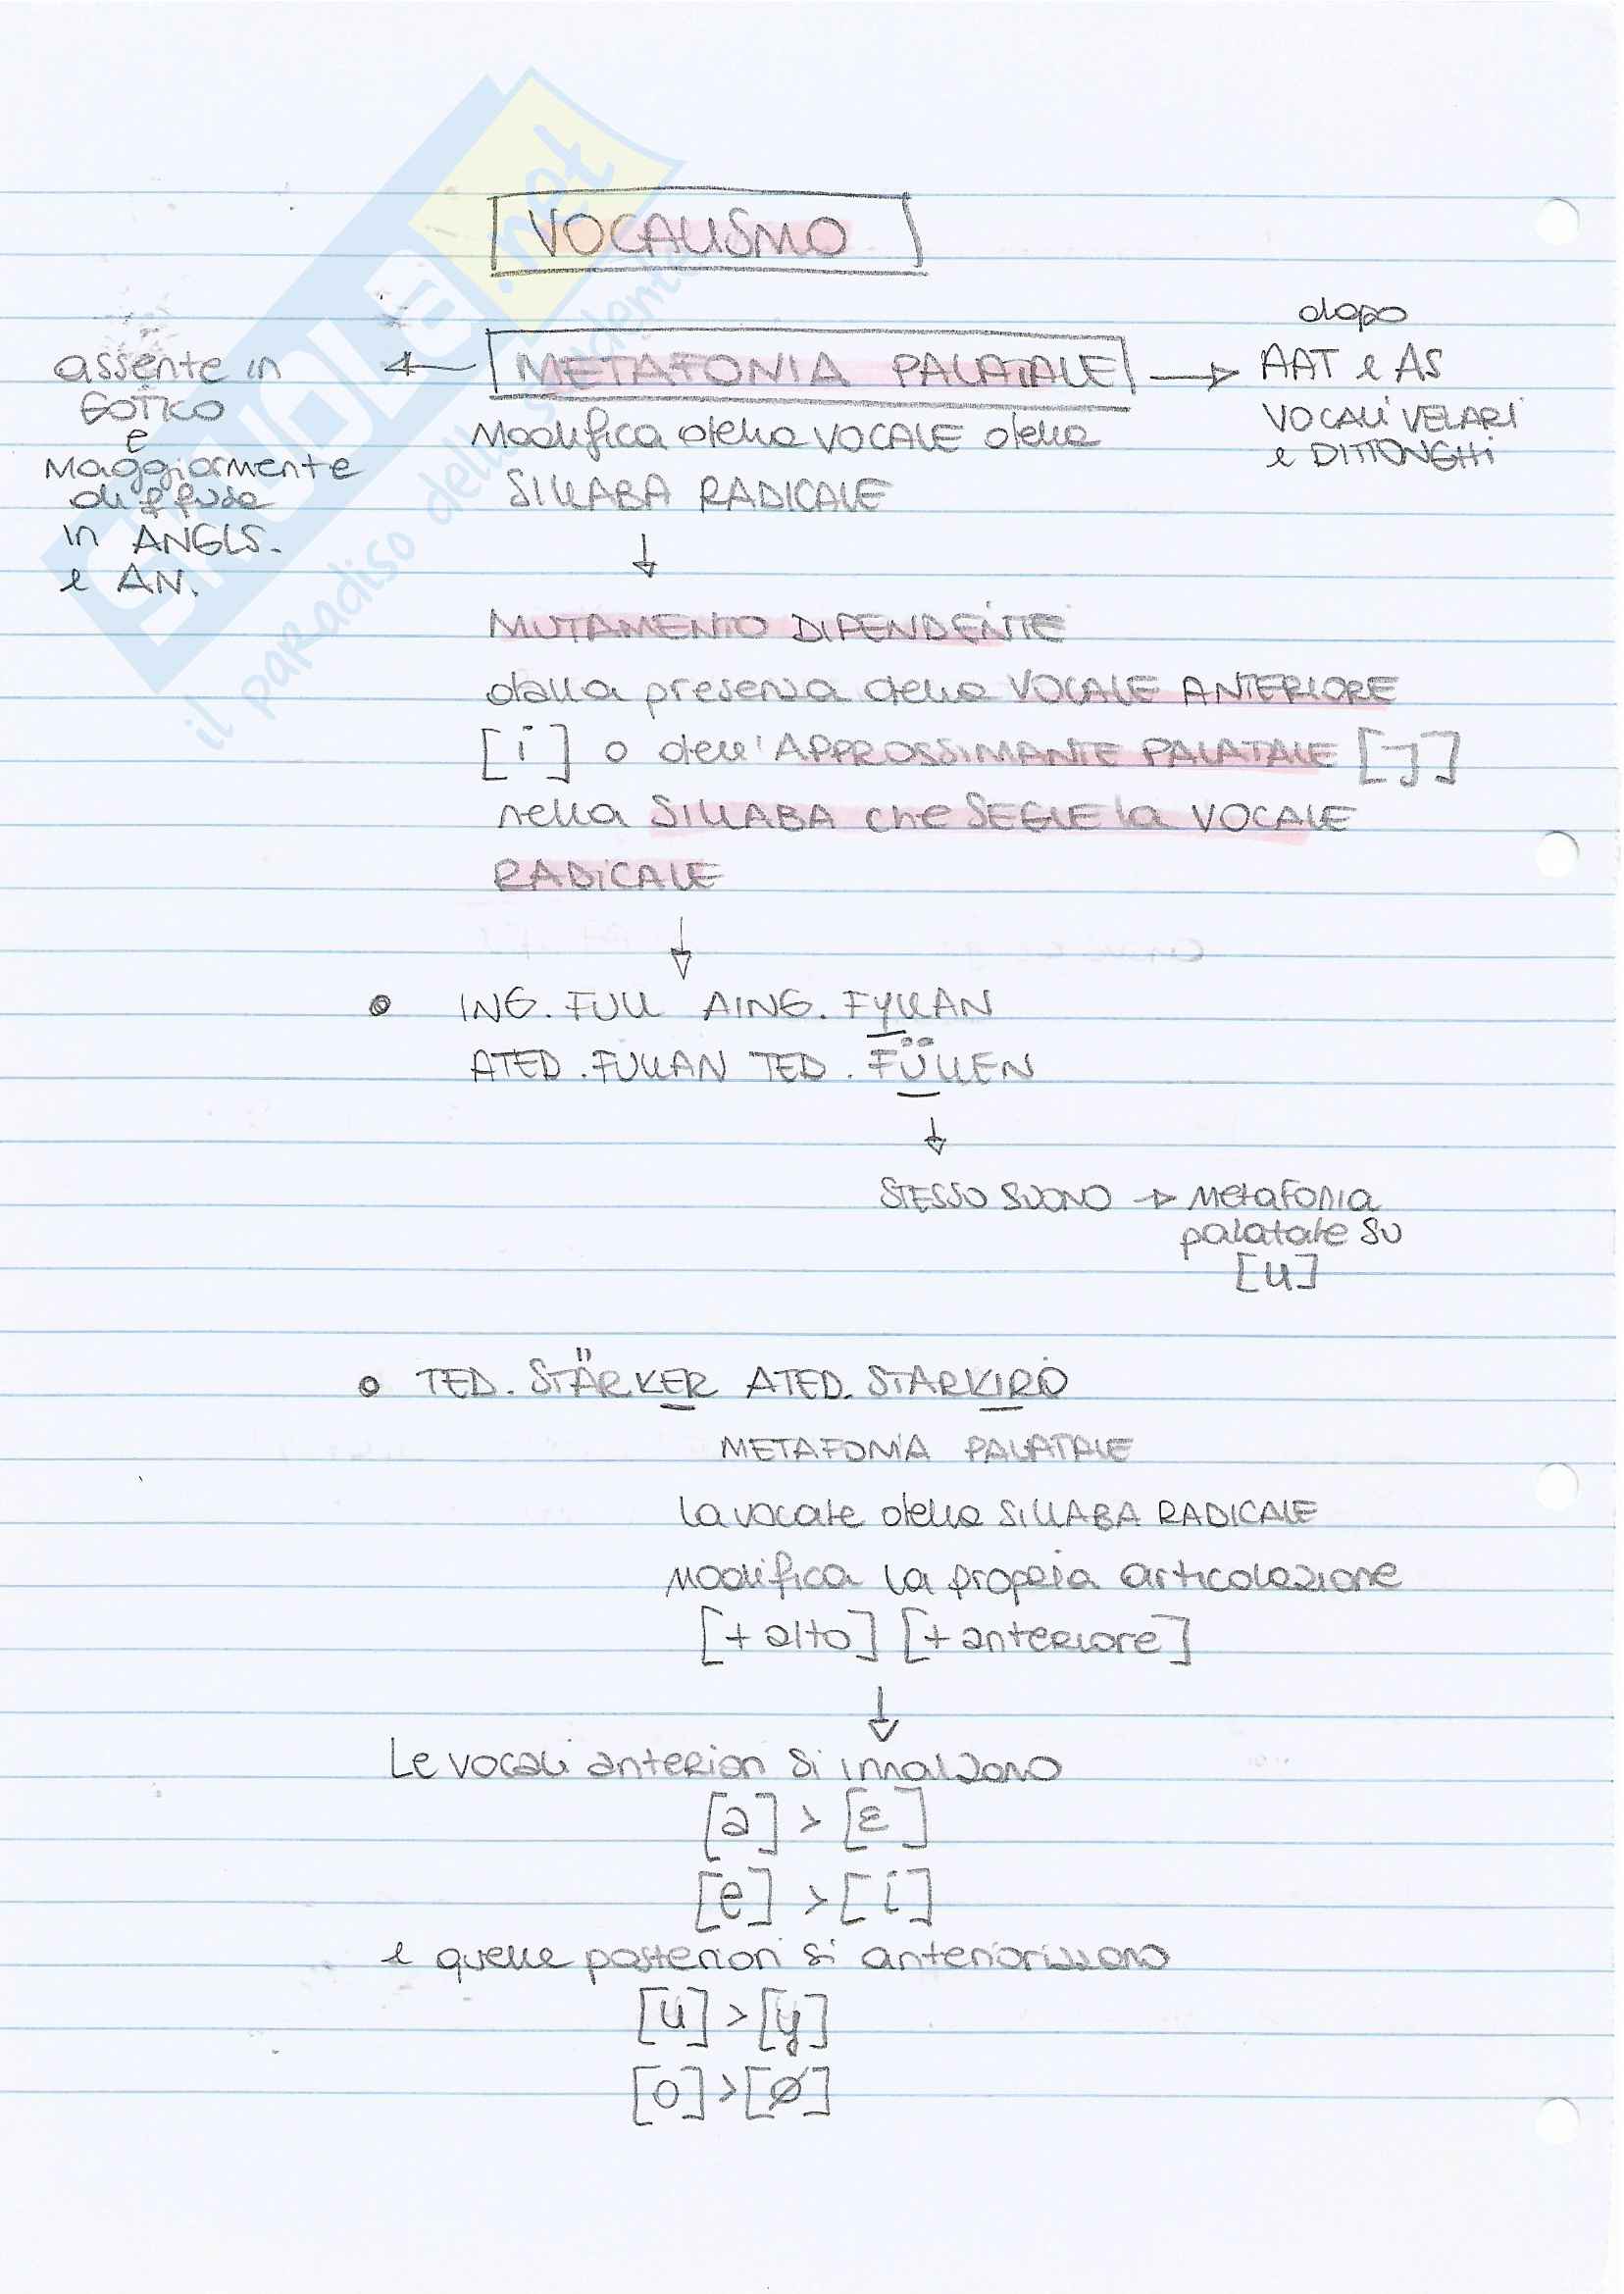 VOCALISMO
METAFONIA PALATALE
Modifica della VOCALE della
SILLABA RADICALE
assente in
GOTICO
e
Maggiormente
diffusa
in ANGLS.
e AN.
dopo
AAT e AS
VOCALI VELARI
e DITTONGHI
MUTAMENTO DIPENDENTE
dalla presenza della VOCALE ANTERIORE
[i] o dell'APPROSSIMANTE PALATALE [J]
nella SILLABA che SEGUE la VOCALE
RADICALE
ING. FULL AING. FYLLAN
ATED. FULLAN TED. FÜLLEN
STESSO SUONO → Metafonia
palatale su
[u]
TED. STÄRKER ATED. STARKIRO
METAFONIA PALATALE
La vocale della SILLABA RADICALE
modifica la propria articolazione
[+ alto] [+ anteriore]
Le vocali anteriori si innalzano
[a] > [ɛ]
[e] > [i]
e quelle posteriori si anteriorizzano
[u] > [y]
[o] > [ø]
SKUOLA.net
il paradiso dello studente